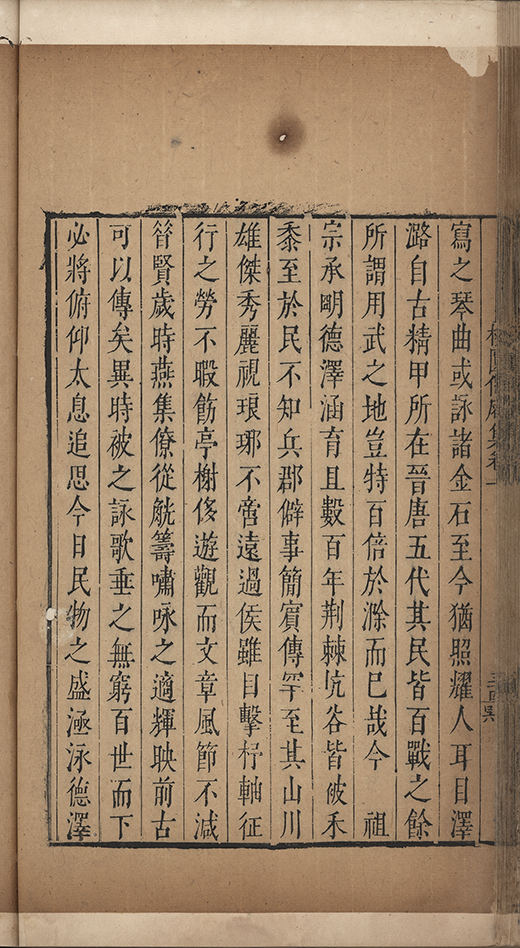 寫之琴曲或詠諸金石至今猶照耀人耳目澤
潞自古精甲所在晉唐五代其民皆百戰之餘
所謂用武之地豈特百倍於滁而已哉今　祖
宗承眀德澤涵育且數百年荆棘坑谷皆被禾
黍至於民不知兵郡僻事簡賓傳罕至其山川
雄傑秀麗視琅琊不啻遠過侯雖目擊杼軸征
行之勞不暇飭亭榭侈遊觀而文章風節不減
昔賢歲時燕集僚從觥籌嘯咏之適輝映前古
可以傳矣異時被之詠歌垂之無窮百世而下
必將俯仰太息追思今日民物之盛涵泳德澤